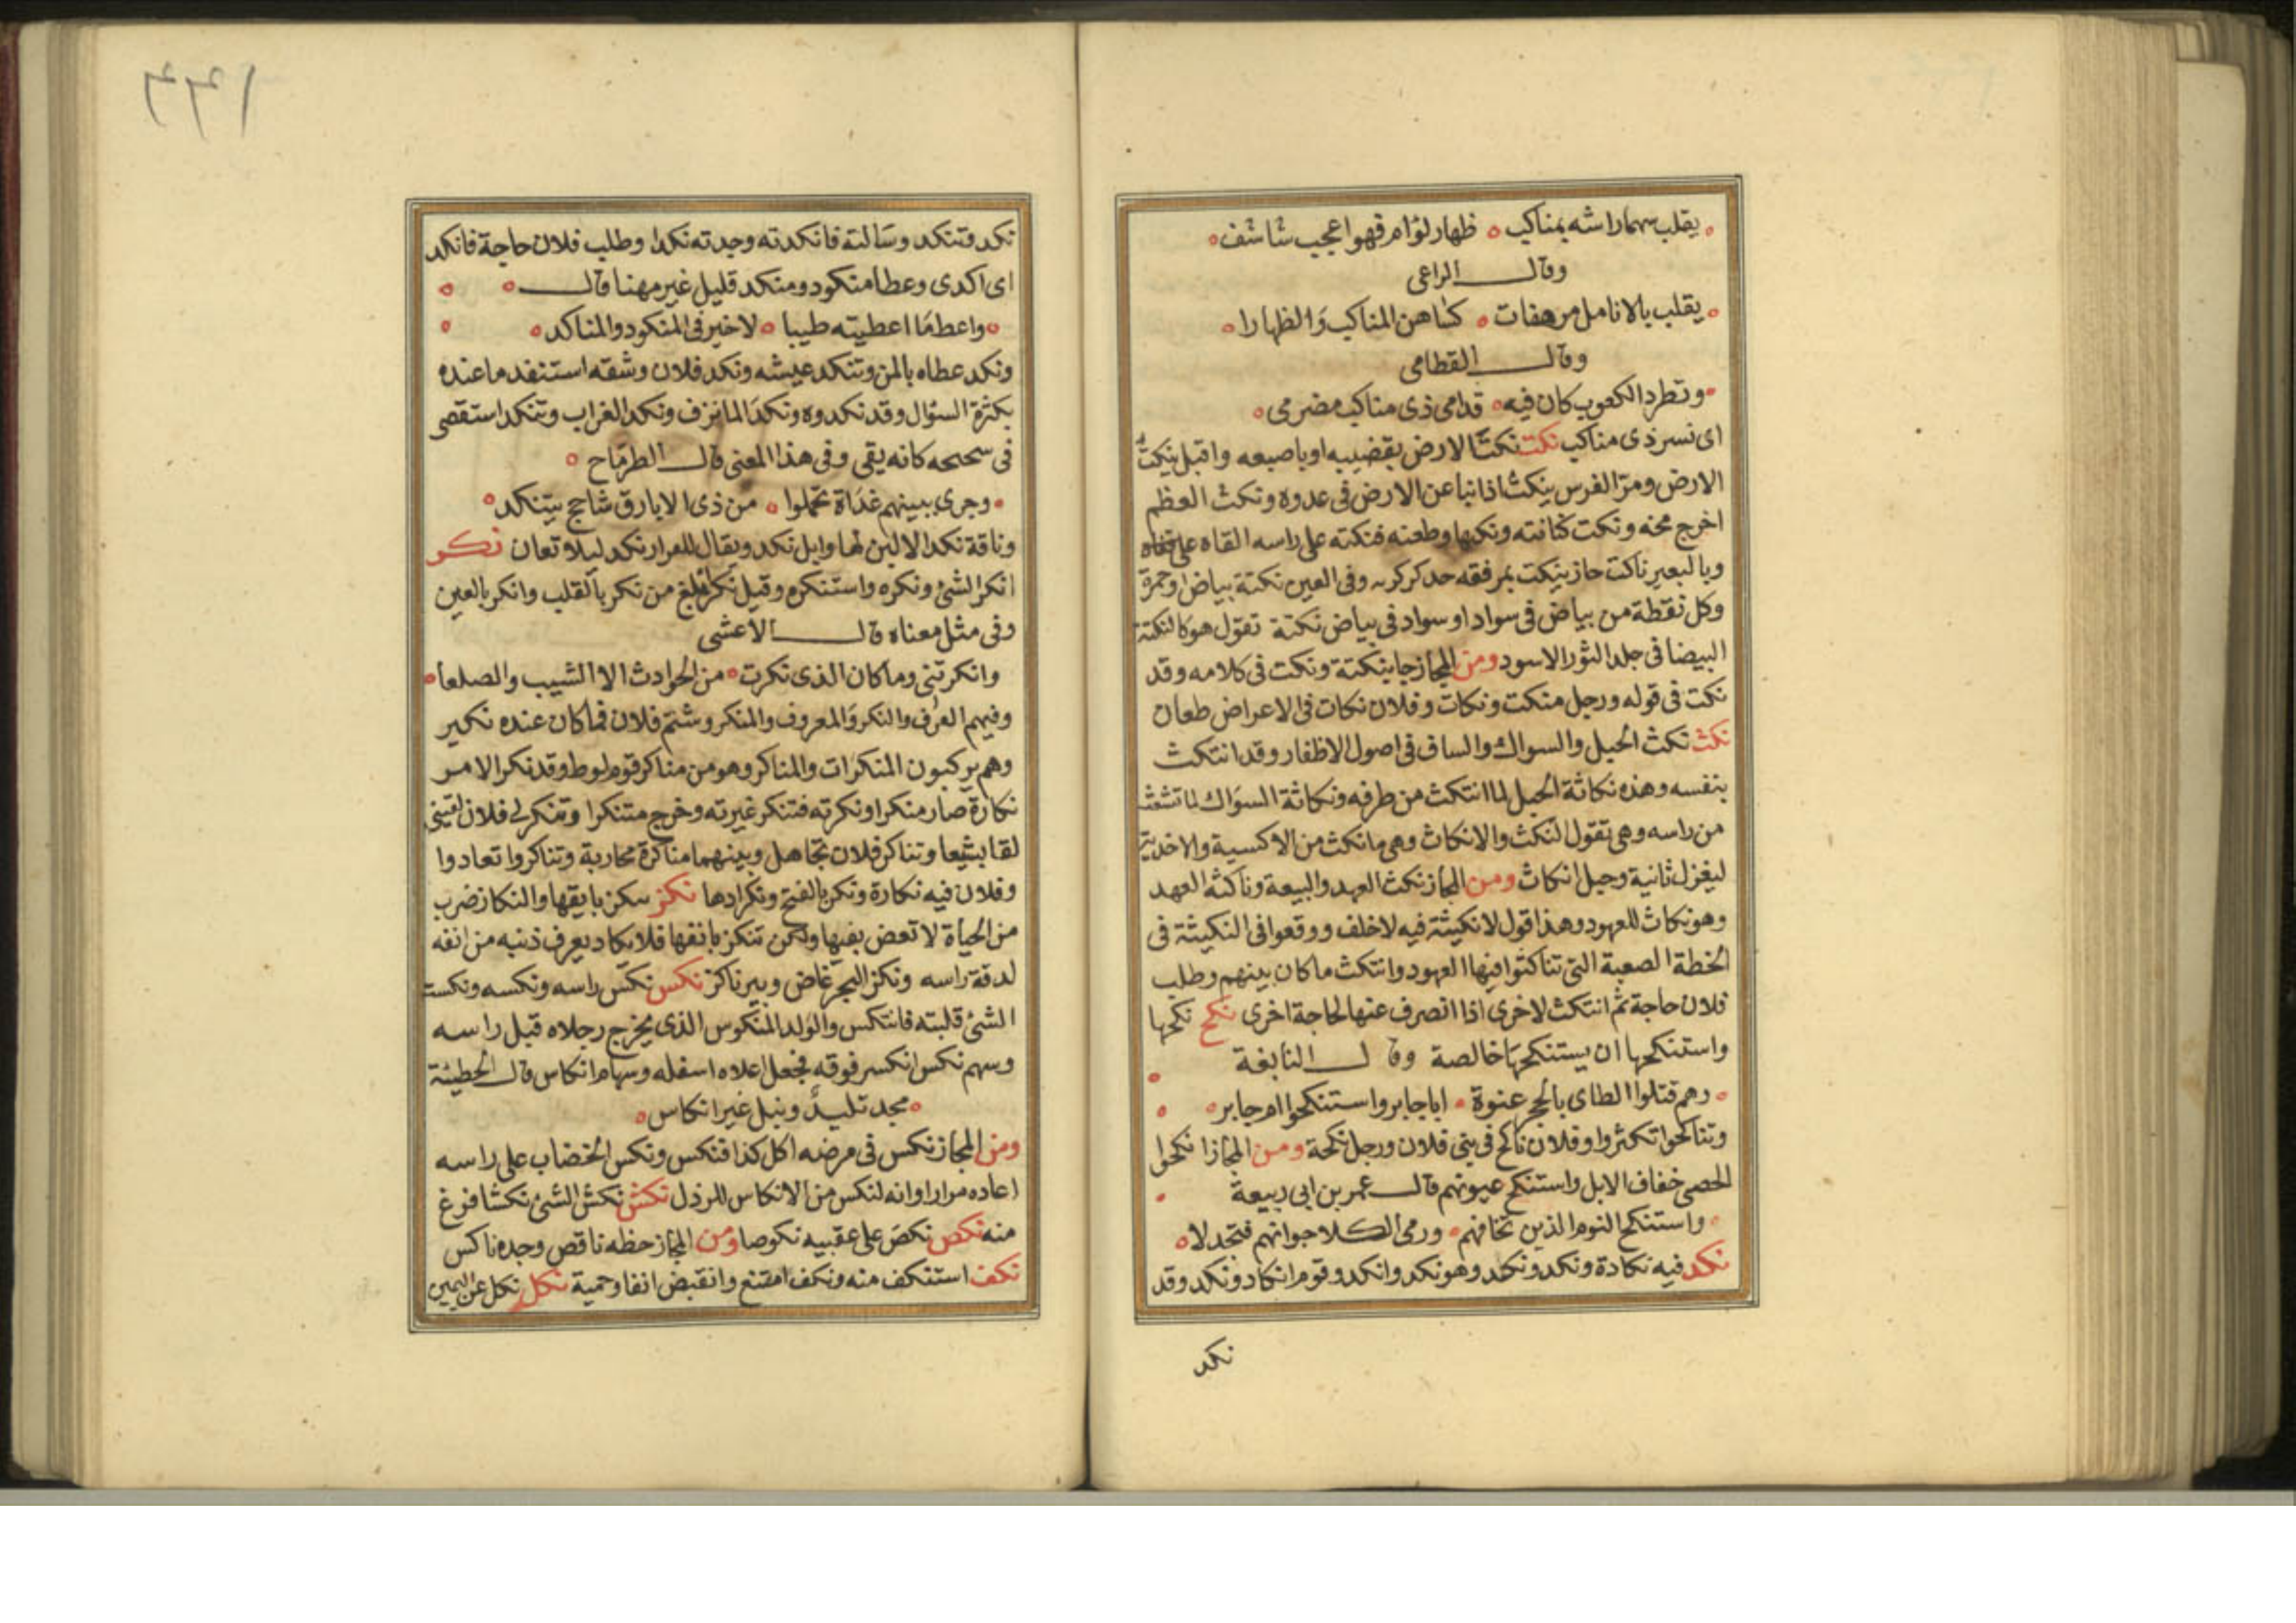 يقلب سهما راشه بمناكب ظهار لؤام فهو اعجب شاشف
وقال الراعى
يقلب بالانامل مرهفات كساهن المناكب والظهارا
وقال القطامى
وتطرد الكعوب كان فيه قدامى ذى مناكب مضرحى
اى نسر ذى مناكب نكت نكت الارض بقضيبه او باصبعه واقبل ينكت
الارض ومر الفرس ينكث اذا نبا عن الارض فى عدوه ونكث العظم
اخرج مخه ونكت كنانته ونكبها وطعنه فنكته على راسه القاه على قفاه
وبالبعير ناكت حاز ينكت بمرفقه حد كركرته وفى العين نكتة بياض او حمرة
وكل نقطة من بياض فى سواد او سواد فى بياض نكتة تقول هو كالنكتة
البيضا فى جلد الثور الاسود ومن المجاز جا بنكتة ونكت فى كلامه وقد
نكت فى قوله ورجل منكت ونكات وفلان نكات فى الاعراض طعان
نكث نكث الحبل والسواك والساف فى اصول الاظفار وقد انتكث
بنفسه وهذه نكاثة الحبل لما انتكث من طرفه ونكاثة السواك لما تشعث
من راسه وهى تقول النكث والانكاث وهى ما نكث من الاكسية والاخبية
ليغزل ثانية وحبل انكاث ومن المجاز نكث العهد والبيعة وناكثه العهد
وهو نكاث للعهود وهذا قول لا نكيثة فيه لا خلف ووقعوا فى النكيثة فى
الخطة الصعبة التى تناكثوا فيها العهود وانتكث ما كان بينهم وطلب
فلان حاجة ثم انتكث لاخرى اذا انصرف عنها لحاجة اخرى نكح نكحها
واستنكحها ان يستنكحها خالصة وقال النابغة
وهم قتلوا الطاى بالحجر عنوة اباجابر واستنكحوا ام جابر
وتناكحوا تكثروا وفلان ناكح فى بنى فلان ورجل نكحة ومن المجاز انكحوا
الحصى خفاف الابل واستنكح عيونهم قال عمر بن ابى ربيعة
واستنكح النوم الذين تخافهم ورمى الكلا جوابهم فتجدلا
نكد فيه نكادة ونكد ونكد وهو نكد وانكد وقوم انكاد ونكد وقد
نكد
١٦٦
نكد فتنكد وسالته فانكدته وجدته نكدا وطلب فلان حاجة فانكد
اى اكدى وعطا منكود ومنكد قليل غير مهنا قال
واعط ما اعطيته طيبا لا خير فى المنكود والمناكد
ونكد عطاه بالمن وتنكد عيشه ونكد فلان وشقه استنفد ما عنده
بكثرة السؤال وقد نكدوه ونكد الما نزف ونكد الغراب وتنكد استقصى
فى سحححه كانه يقى وفى هذا المعنى قال الطرماح
وجرى ببينهم غداة تحملوا من ذى الابارق شاحج يتنكد
وناقة نكدا لا لبن لها وابل نكد ويقال للعرار نكد ليلا تعان نكر
انكر الشئ ونكره واستنكره وقيل نكر ابلغ من نكر بالقلب وانكر بالعين
وفى مثل معناه قال الاعشى
وانكرتنى وما كان الذى نكرت من الحوادث الا الشيب والصلعا
وفيهم العرف والنكر والمعروف والمنكر وشتم فلان فما كان عنده نكير
وهم يركبون المنكرات والمناكر وهو من مناكر قوم لوط وقد نكر الامر
نكارة صار منكرا ونكرته فتنكر غيرته وخرج متنكرا وتنكر لى فلان لقينى
لقا بشعا وتناكر فلان تجاهل وبينهما مناكرة محاربة وتناكروا تعادوا
وفلان فيه نكارة ونكر بالفتح ونكر ادها نكز سكن بايقها والنكاز ضرب
من الحياة لا تعض بفيها ولكن تنكز بانفها فلا يكاد يعرف ذنبه من انفه
لدقة راسه ونكز البحر غاض وبير ناكز نكس نكس راسه ونكسه ونكست
الشئ قلبته فانتكس والولد المنكوس الذى يخرج رجلاه قبل راسه
وسهم نكس انكسر فوقه فجعل اعلاه اسفله وسهام انكاس قال الحطيئة
مجد تليد ونبل غير انكاس
ومن المجاز نكس فى مرضه اكل كذا فنكس ونكس الخضاب على راسه
اعاده مرارا وانه لنكس من الانكاس للرذل نكش نكش الشئ نكشا فرغ
منه نكص نكص على عقبيه نكوصا ومن المجاز حظه ناقص وجده ناكس
نكف استنكف منه ونكف امتنع وانقبض انفا وحمية نكل نكل عن اليمين